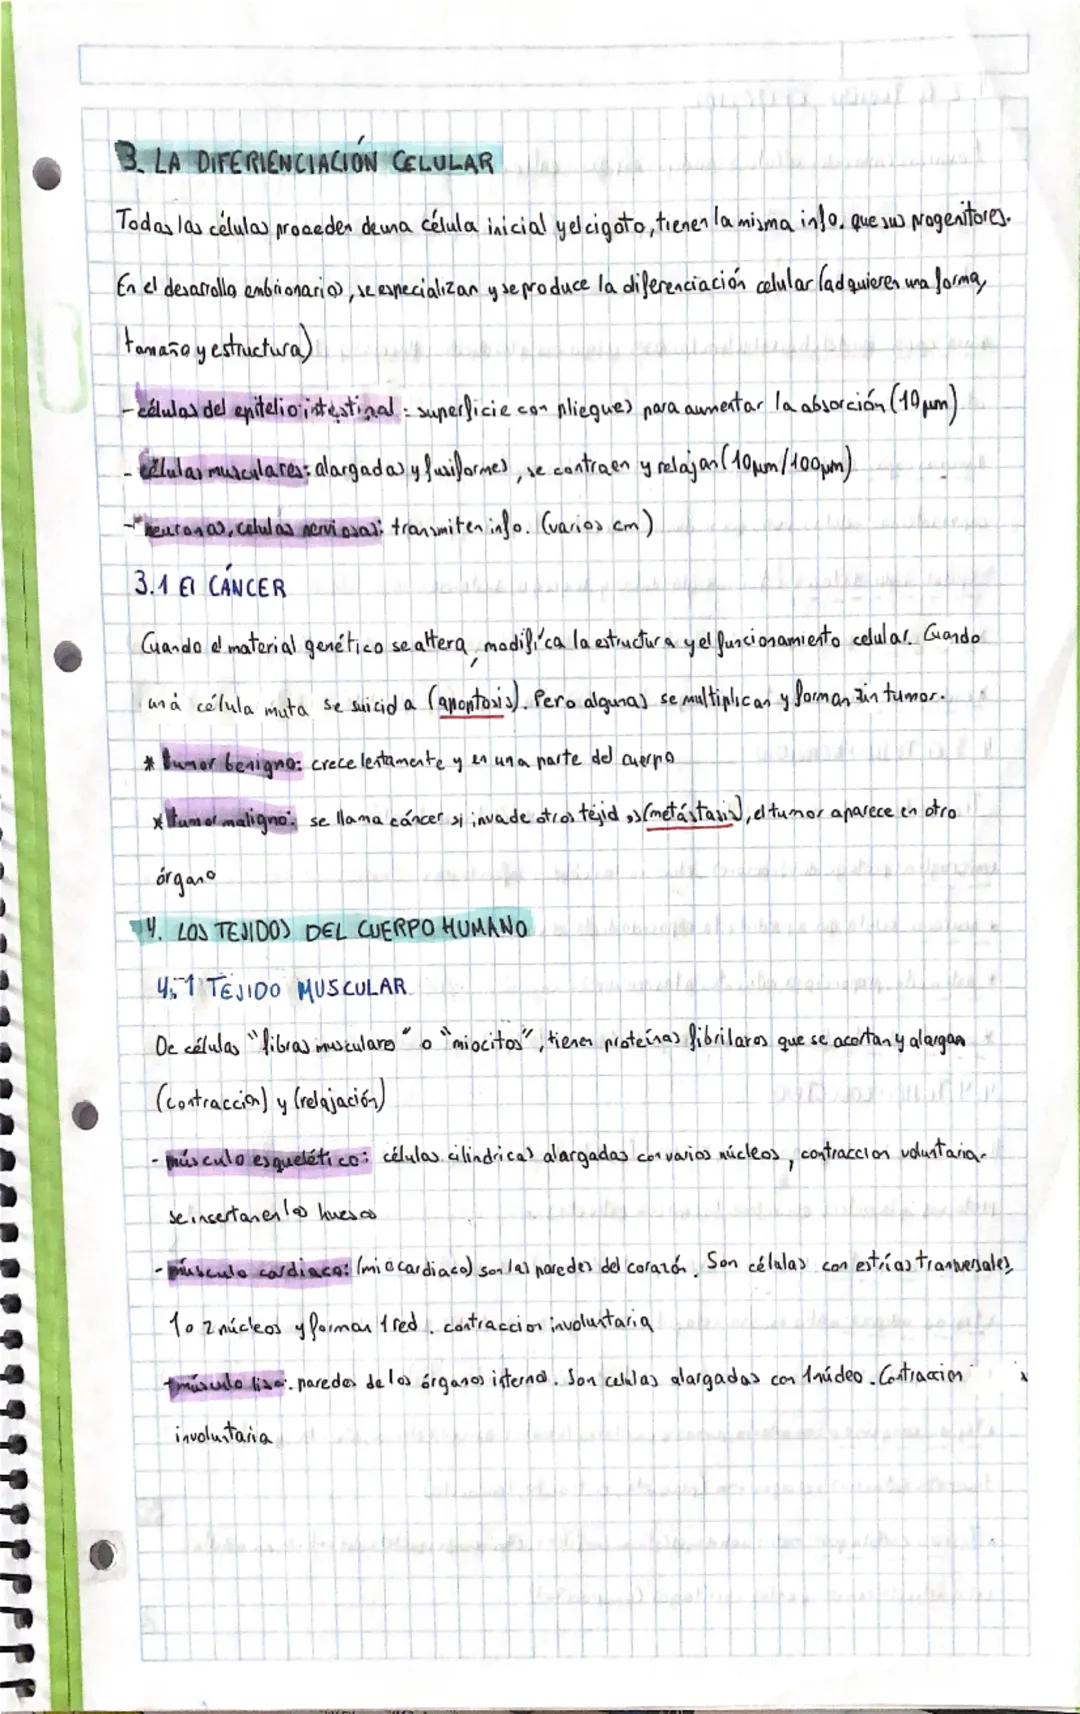 3. LA DIFERIENCIACIÓN CELULAR
Todas las células proceden de una célula inicial y el cigoto, tienen la misma info. que sus progenitores.
En el desarrollo embrionario, se especializan y se produce la diferenciación celular (adquieren una forma,
tamaño y estructura)
- células del epitelio intestinal: superficie con pliegues para aumentar la absorción (10 µm)
- células musculares: alargadas y fusiformes, se contraen y relajan (10µm/100µm)
- neuronas, celulas nerviosas: transmiten info. (varios cm)
3.1 El CÁNCER
Cuando el material genético se altera, modifica la estructura y el funcionamiento celular. Cuando
una célula muta se suicida (apoptosis). Pero algunas se multiplican y forman un tumor.
* tumor benigno: crece lentamente y en una parte del cuerpo
* tumor maligno: se llama cáncer si invade otros tejidos (metástasis), el tumor aparece en otro
órgano
4. LOS TEJIDOS DEL CUERPO HUMANO
4.1 TEJIDO MUSCULAR
De células "fibras musculares" o "miocitos", tienen proteínas fibrilares que se acortan y alargan
(contraccion) y (relajación)
- músculo esquelético: células cilindricas alargadas con varios núcleos, contraccion voluntaria.
se insertan en los huesos
- músculo cardiaco: (miocardiaco) son las paredes del corazón. Son células con estrías tranversales,
1 o 2 núcleos y forman 1 red. contraccion involuntaria
- músculo liso: paredes de los órganos internos. Son celulas alargadas con 1 núcleo. Contraccion
involuntaria